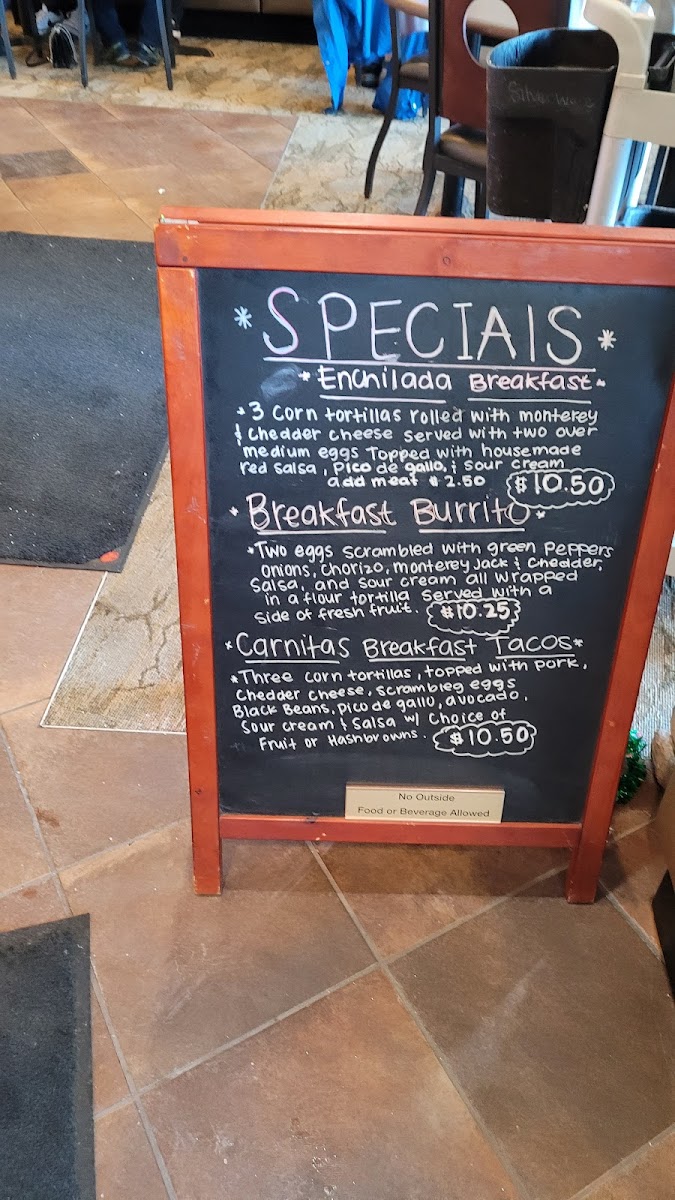 Silverware
* SPECIALS *
* Enchilada Breakfast *
* 3 corn tortillas rolled with monterey
& chedder cheese served with two over
medium eggs Topped with housemade
red salsa, Pico de gallo, & sour cream
add meat $ 2.50 $10.50
* Breakfast Burrito *
* Two eggs scrambled with green Peppers
onions, chorizo, monterey Jack & chedder,
Salsa, and sour cream all wrapped
in a flour tortilla served with a
side of fresh fruit. $10.25
* Carnitas Breakfast Tacos *
* Three corn tortillas, topped with pork,
chedder cheese, scrambleg eggs
Black Beans, pico de gallo, avocado,
Sour cream & salsa w/ choice of
Fruit or Hashbrowns. $10.50
No Outside
Food or Beverage Allowed